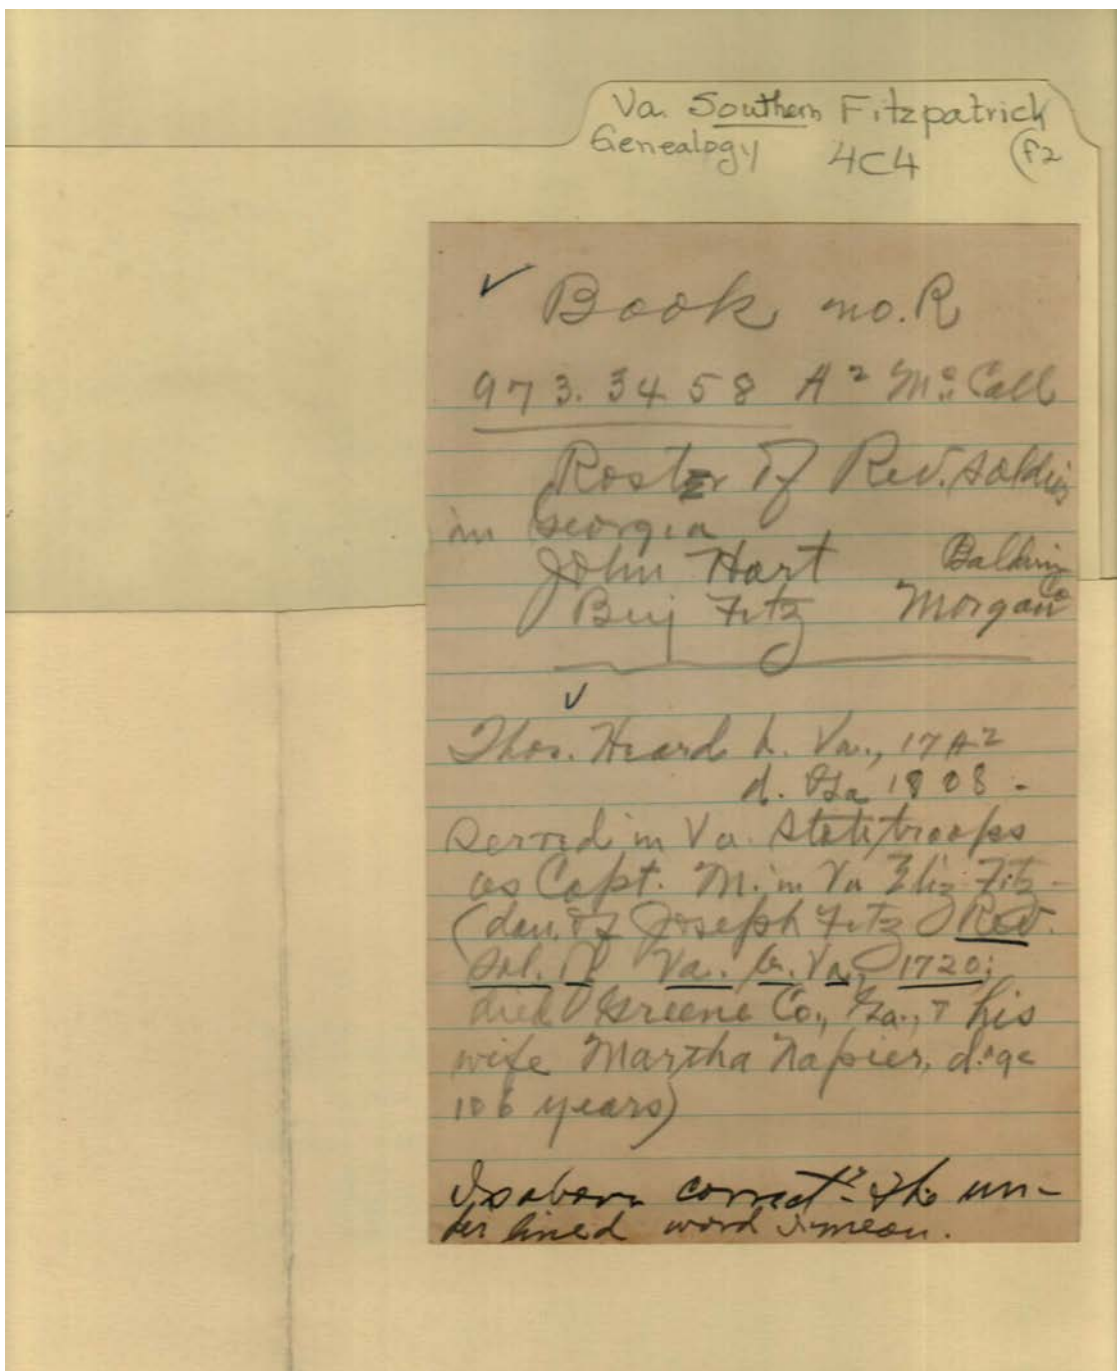 Va. Southern Fitzpatrick
Genealogy 4C4 (F2
✓ Book no. R
973.3458 A2 Mc Call
Roster of Rev. Soldiers
in Georgia
John Hart Baldwin
Benj Fitz Morgan Co
✓
Thos. Heard b. Va., 1742
d. Ga 1808 -
served in Va. State troops
as Capt. M. in Va Eliz Fitz -
(dau. of Joseph Fitz Rev.
Sol. of Va. b. Va, 1720;
died Greene Co., Ga., & his
wife Martha Napier, d. age
106 years)
Is above correct? - The un-
der lined word I mean.